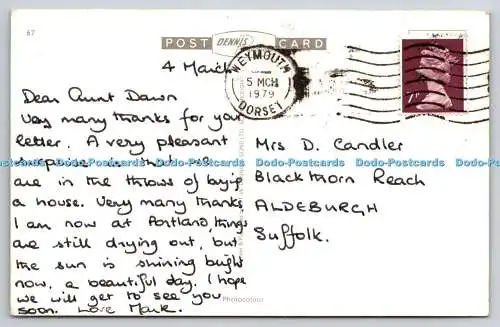 67
POST DENNIS CARD
WEYMOUTH
5 MCH
1979
DORSET
7P
4 March
Dear Aunt Dawn
Very many thanks for your
letter. A very pleasant
surprise
are in the throws of buying
a house. Very many thanks
I am now at Portland, things
are still drying out, but
the sun is shining bright
now, a beautiful day. I hope
we will get to see you
soon. Love Mark.
Mrs D. Candler
Blackthorn Reach
ALDEBURGH
Suffolk.
Photocolour
Dodo-Postcards Dodo-Postcards Dodo-Postcards Dodo-Postcards Dodo-Postcards Dodo-Postcards